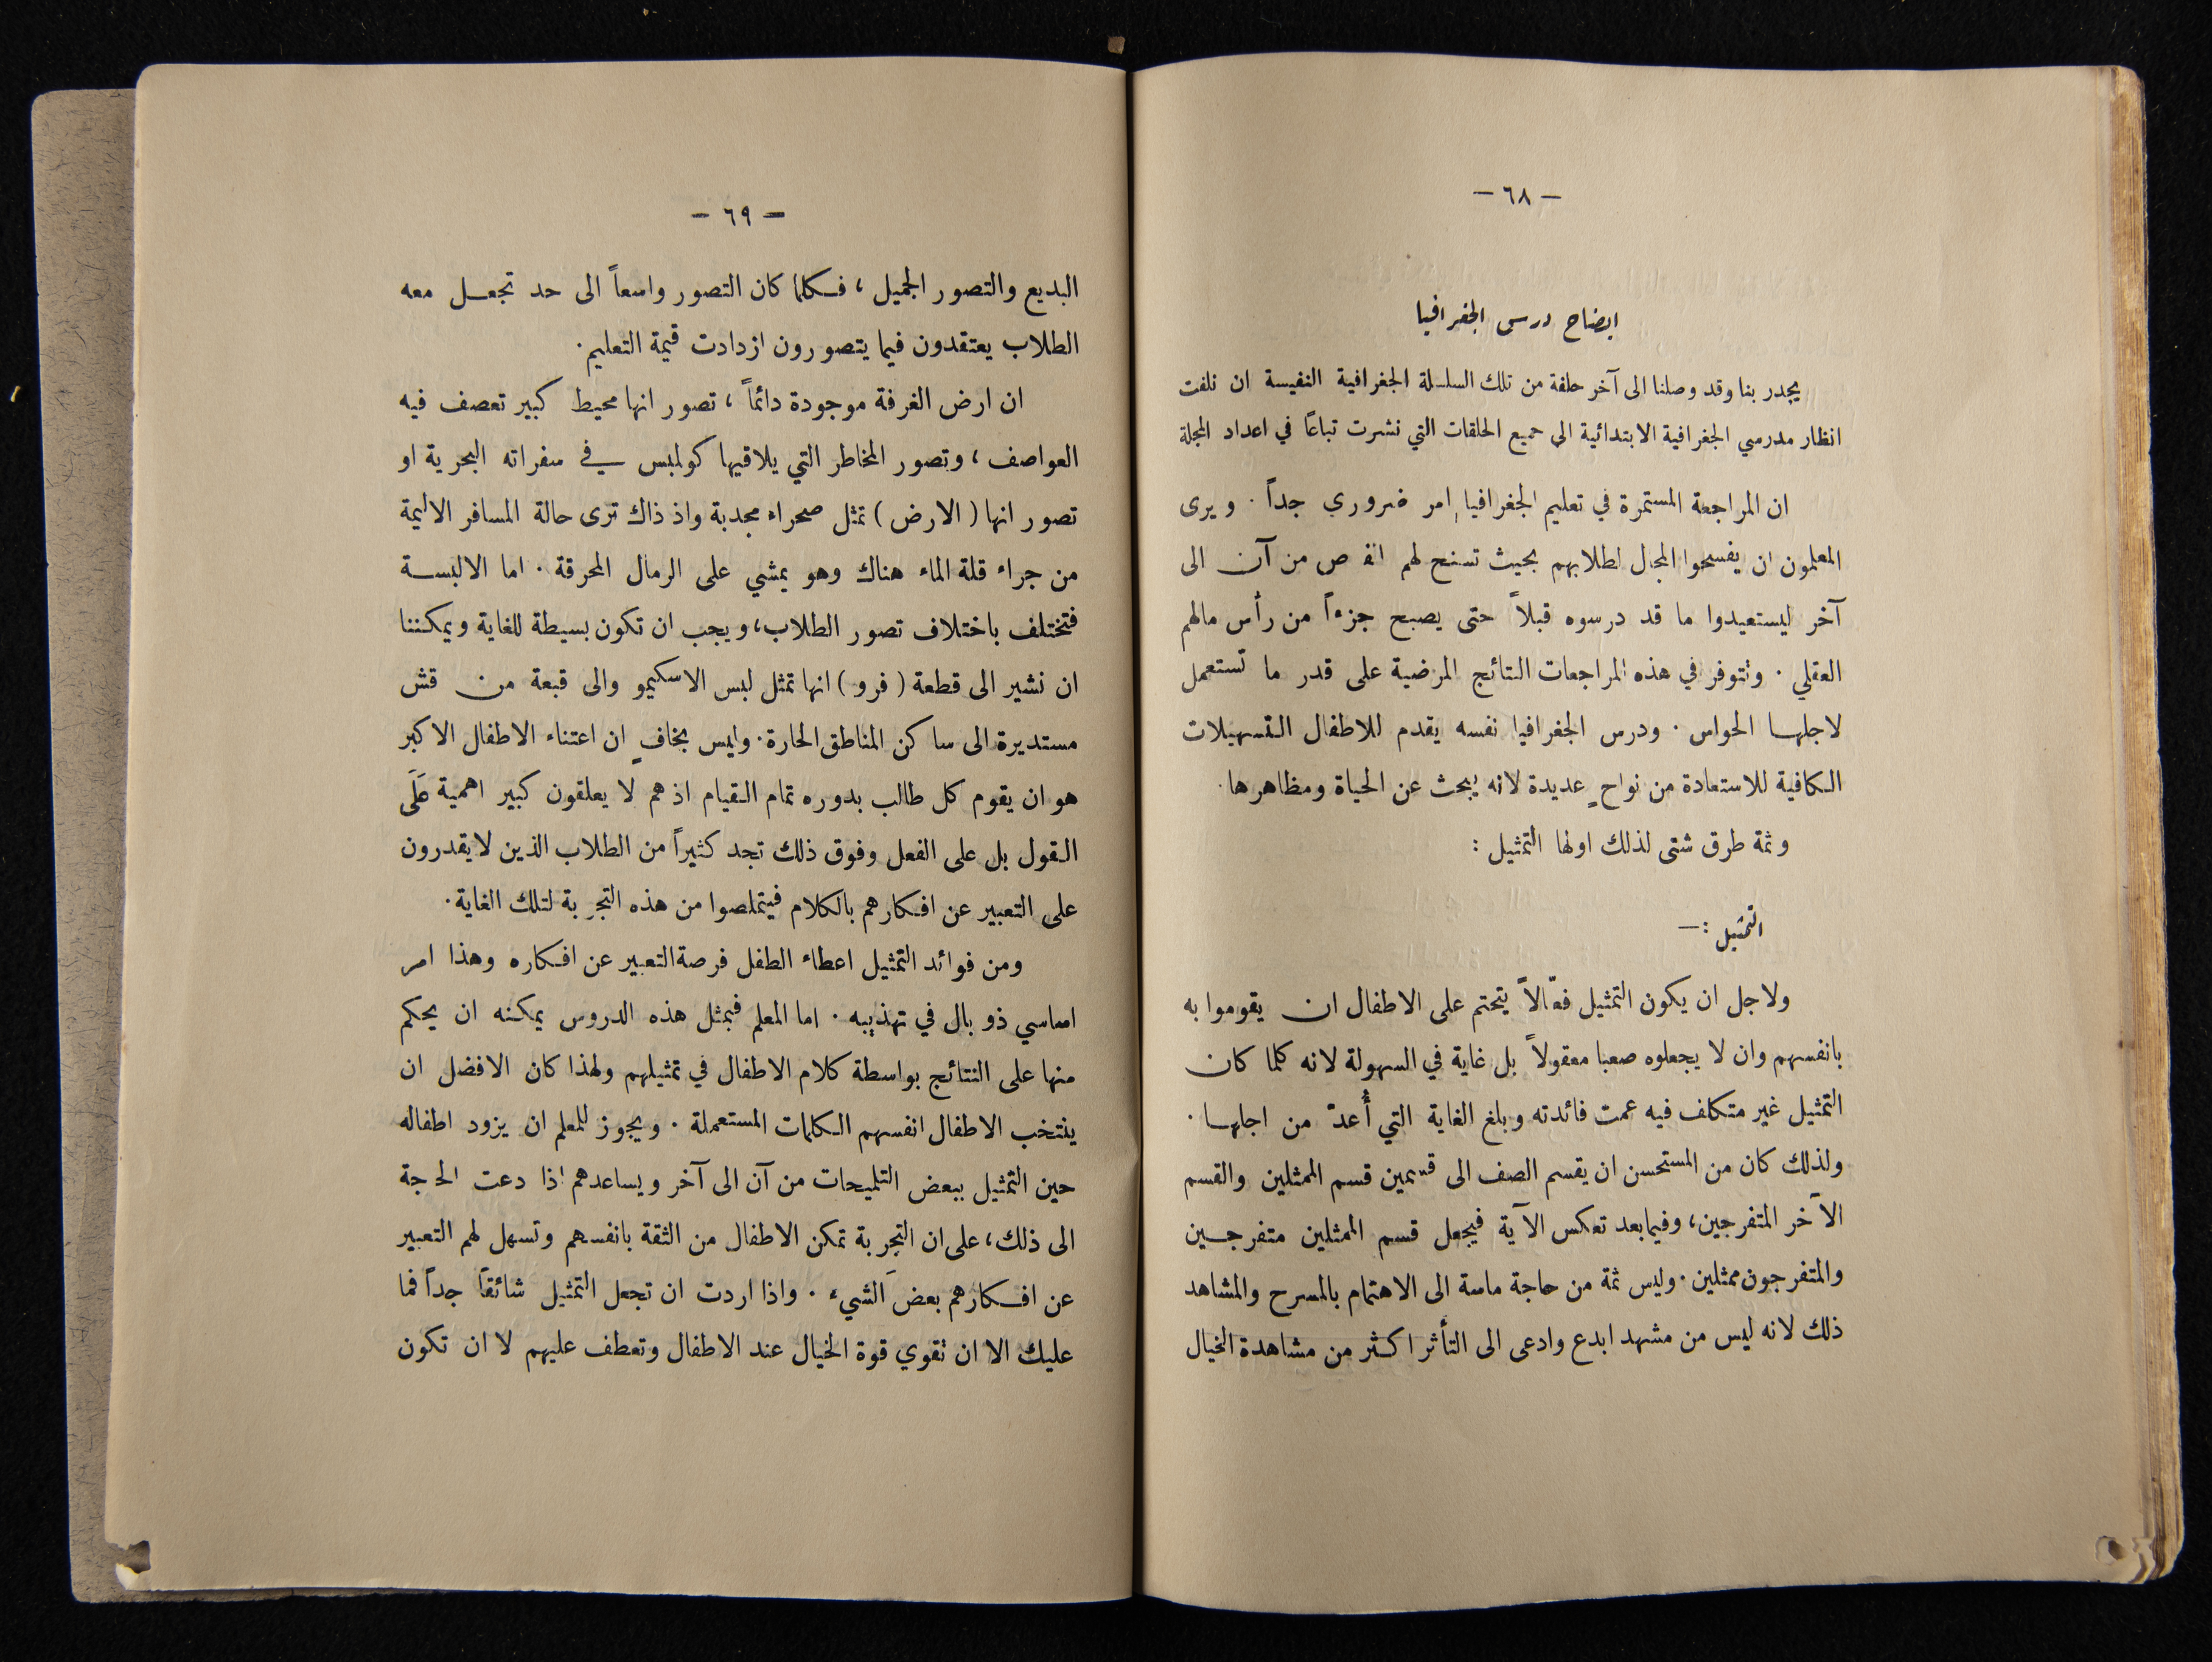 — ٦٨ —
ايضاح درس الجغرافيا
يجدر بنا وقد وصلنا الى آخر حلقة من تلك السلسلة الجغرافية النفيسة ان نلفت
انظار مدرسي الجغرافية الابتدائية الى جميع الحلقات التي نشرت تباعاً في اعداد المجلة
ان المراجعة المستمرة في تعليم الجغرافيا امر ضروري جداً . ويرى
المعلمون ان يفسحوا المجال لطلابهم بحيث تسنح لهم الفرص من آن الى
آخر ليستعيدوا ما قد درسوه قبلاً حتى يصبح جزءاً من رأس مالهم
العقلي . وتتوفر في هذه المراجعات النتائج المرضية على قدر ما تستعمل
لاجلها الحواس . ودرس الجغرافيا نفسه يقدم للاطفال التسهيلات
الكافية للاستعادة من نواحٍ عديدة لانه يبحث عن الحياة ومظاهرها .
وثمة طرق شتى لذلك اولها التمثيل :
التمثيل : —
ولاجل ان يكون التمثيل فعّالاً يتحتم على الاطفال ان يقوموا به
بانفسهم وان لا يجعلوه صعبا معقولاً بل غاية في السهولة لانه كلما كان
التمثيل غير متكلف فيه عمت فائدته وبلغ الغاية التي أُعدّ من اجلها .
ولذلك كان من المستحسن ان يقسم الصف الى قسمين قسم الممثلين والقسم
الآخر المتفرجين، وفيما بعد تعكس الآية فيجعل قسم الممثلين متفرجين
والمتفرجون ممثلين . وليس ثمة من حاجة ماسة الى الاهتمام بالمسرح والمشاهد
ذلك لانه ليس من مشهد ابدع وادعى الى التأثر اكثر من مشاهدة الخيال
— ٦٩ —
البديع والتصور الجميل ، فكلما كان التصور واسعاً الى حد تجعل معه
الطلاب يعتقدون فيما يتصورون ازدادت قيمة التعليم .
ان ارض الغرفة موجودة دائماً ، تصور انها محيط كبير تعصف فيه
العواصف ، وتصور المخاطر التي يلاقيها كولمبس في سفراته البحرية او
تصور انها ( الارض ) تمثل صحراء مجدبة واذ ذاك ترى حالة المسافر الاليمة
من جراء قلة الماء هناك وهو يمشي على الرمال المحرقة . اما الالبسة
فتختلف باختلاف تصور الطلاب، ويجب ان تكون بسيطة للغاية ويمكننا
ان نشير الى قطعة ( فرو ) انها تمثل لبس الاسكيمو والى قبعة من قش
مستديرة الى ساكن المناطق الحارة . وليس بخافٍ ان اعتناء الاطفال الاكبر
هو ان يقوم كل طالب بدوره تمام القيام اذ هم لا يعلقون كبير اهمية عَلَى
القول بل على الفعل وفوق ذلك تجد كثيراً من الطلاب الذين لا يقدرون
على التعبير عن افكارهم بالكلام فيتملصوا من هذه التجربة لتلك الغاية .
ومن فوائد التمثيل اعطاء الطفل فرصة التعبير عن افكاره وهذا امر
اساسي ذو بال في تهذيبه . اما المعلم فبمثل هذه الدروس يمكنه ان يحكم
منها على النتائج بواسطة كلام الاطفال في تمثيلهم ولهذا كان الافضل ان
ينتخب الاطفال انفسهم الكلمات المستعملة . ويجوز للمعلم ان يزود اطفاله
حين التمثيل ببعض التلميحات من آن الى آخر ويساعدهم اذا دعت الحاجة
الى ذلك ، على ان التجربة تمكن الاطفال من الثقة بانفسهم وتسهل لهم التعبير
عن افكارهم بعضَ الشيء . واذا اردت ان تجعل التمثيل شائقاً جداً فما
عليك الا ان تقوي قوة الخيال عند الاطفال وتعطف عليهم لا ان تكون